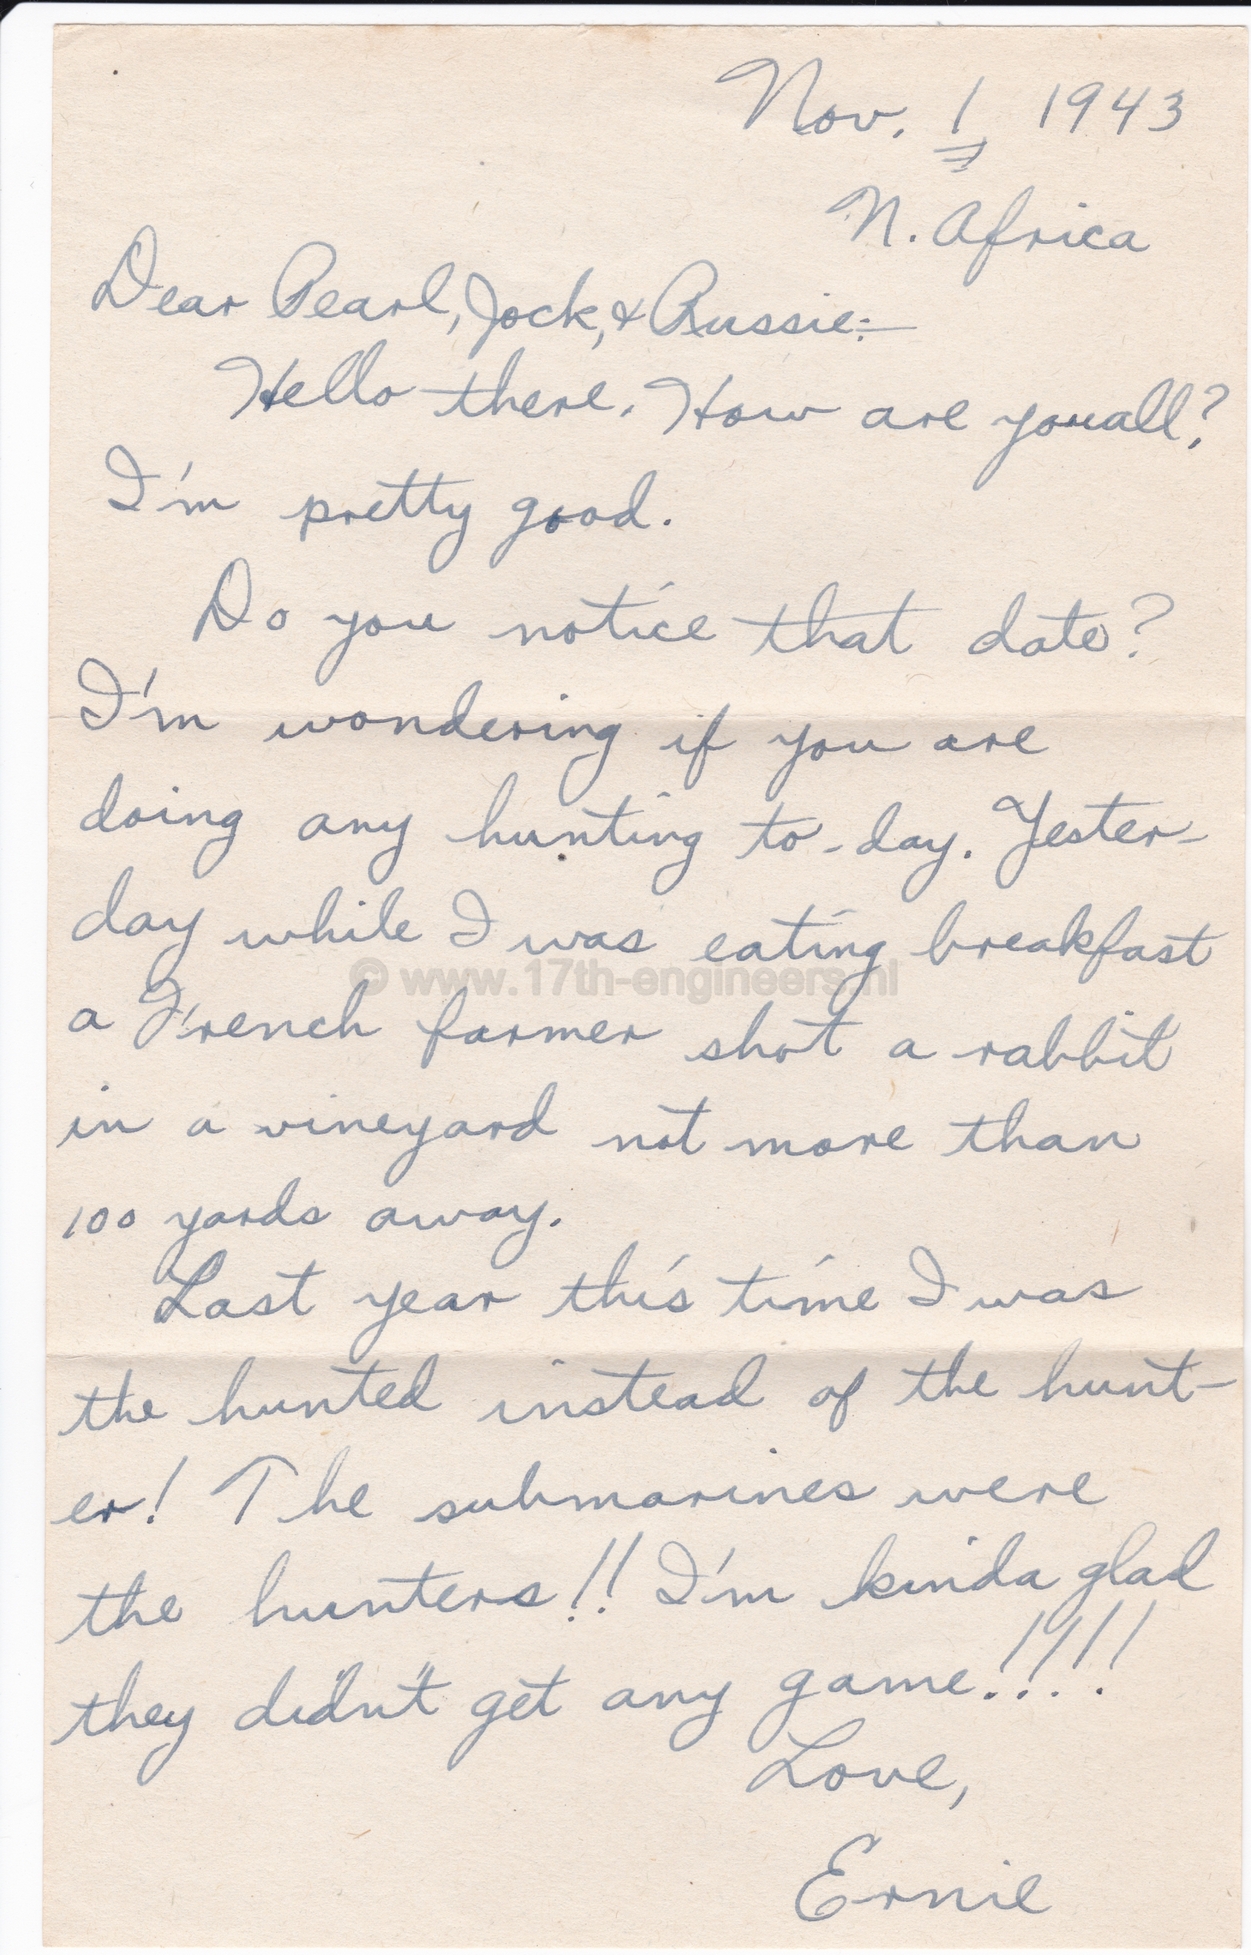 Nov. 1 1943
N. Africa
Dear Pearl, Jock, & Russie:—
Hello there. How are you all?
I'm pretty good.
Do you notice that date?
I'm wondering if you are
doing any hunting to-day. Yester-
day while I was eating breakfast
© www.17th-engineers.nl
a French farmer shot a rabbit
in a vineyard not more than
100 yards away.
Last year this time I was
the hunted instead of the hunt-
er! The submarines were
the hunters!! I'm kinda glad
they didn't get any game!!!!
Love,
Ernie